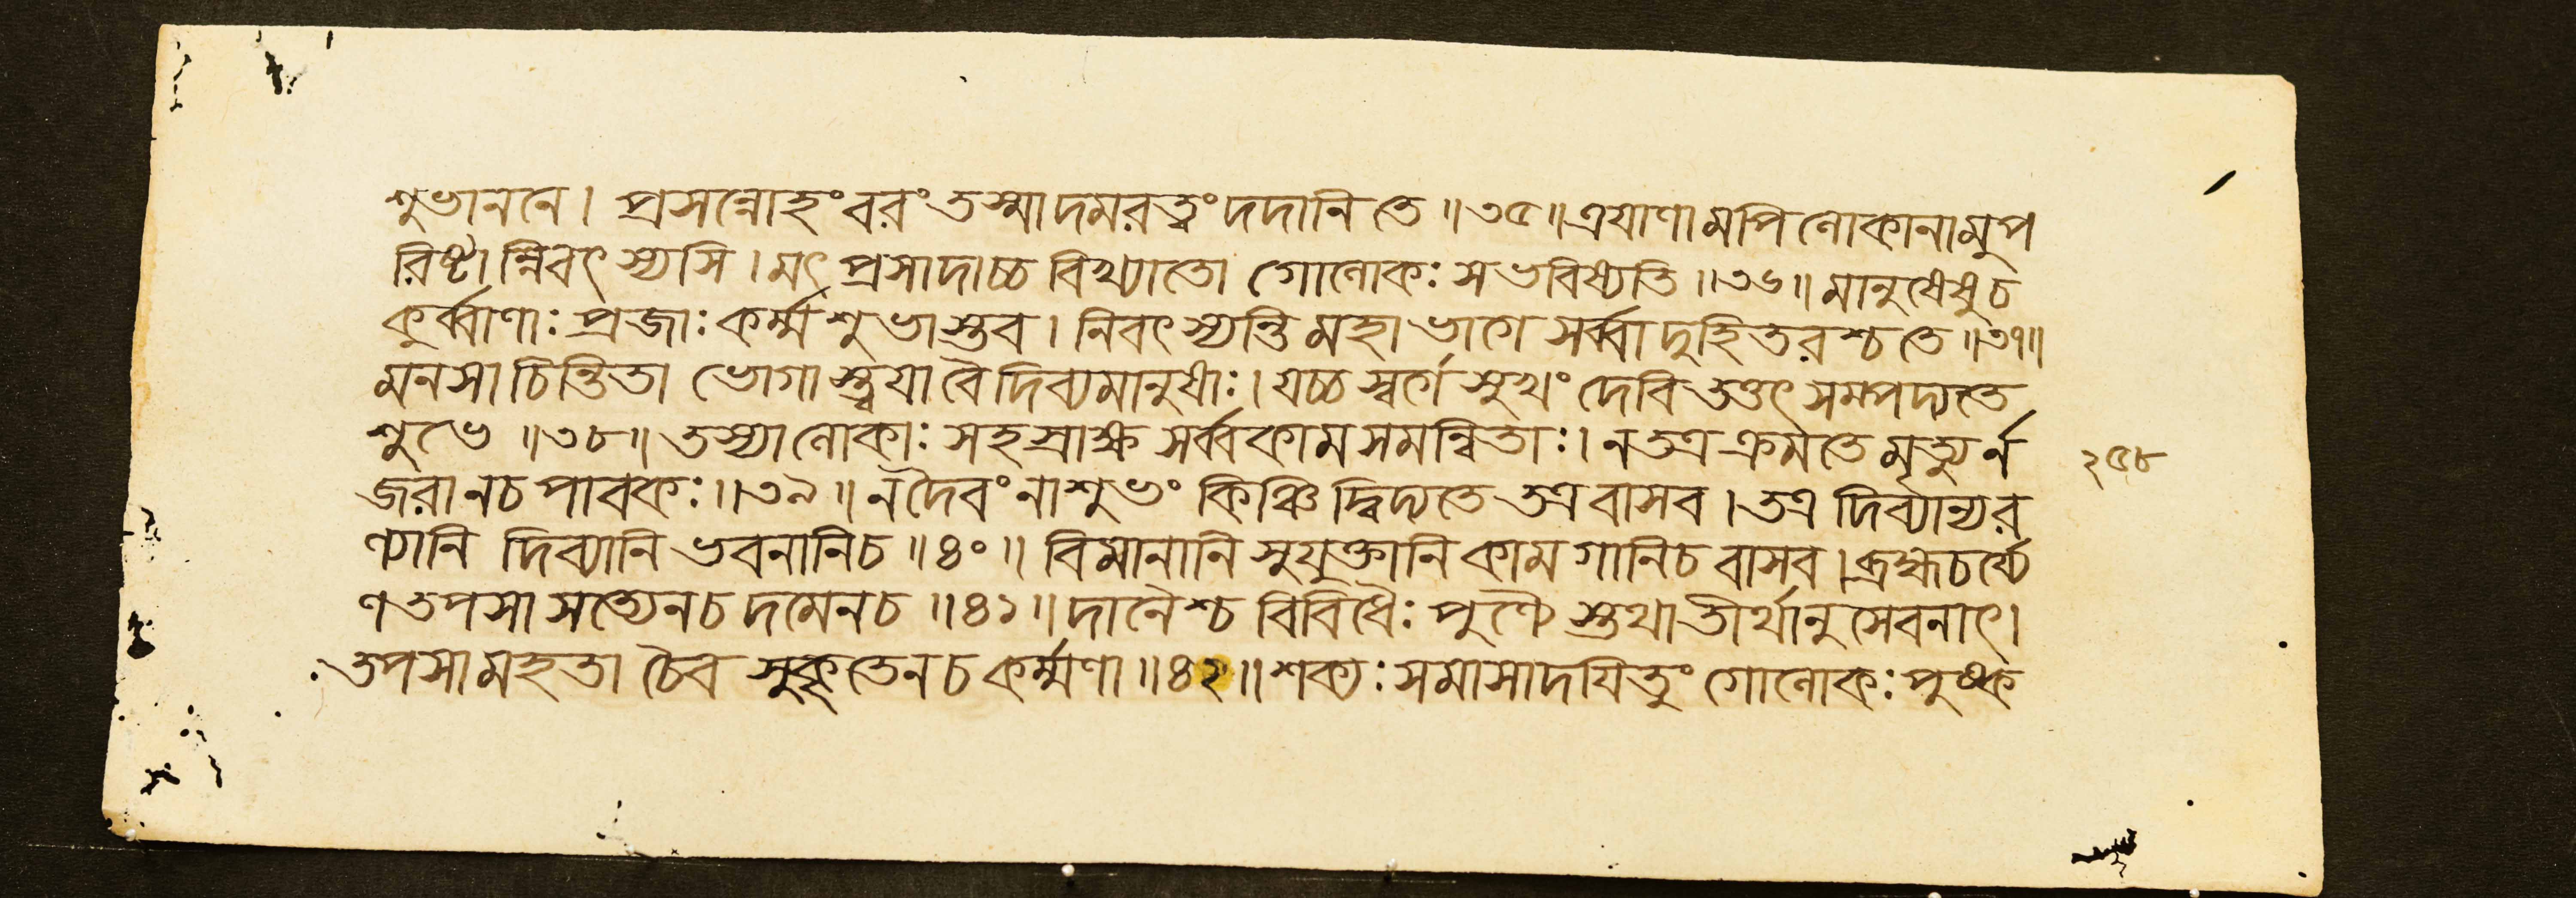 শুভাননে। প্রসন্নোহংবরং তস্মাদমরত্বং দদানিতে॥৩৫॥ত্রয়াণামপিলোকানামুপ
রিষ্টান্নিবৎস্যসি।মৎপ্রসাদাচ্চ বিখ্যাতো গোলোকঃ সভবিষ্যতি॥৩৬॥মানুষেষুচ
কুর্ব্বাণাঃ প্রজাঃ কর্ম্মশুভাস্তব। নিবৎস্যন্তি মহাভাগে সর্ব্বাদুহিতরশ্চতে॥৩৭॥
মনসাচিন্তিতা ভোগাস্ত্বয়া বৈদিব্যমানুষাঃ।যচ্চস্বর্গে সুখং দেবি তত্তৎ সম্পদ্যতে
শুভে॥৩৮॥তস্যালোকাঃ সহস্রাক্ষ সর্ব্বকামসমন্বিতাঃ।নতত্র ক্রমতে মৃত্যুর্ন
জরানচপাবকঃ॥৩৯॥নদৈবং নাশুভং কিঞ্চিদ্বিদ্যতে তত্র বাসব।তত্র দিব্যান্যর
ণ্যানি দিব্যানি ভবনানিচ॥৪০॥বিমানানি সুযুক্তানি কামগানিচ বাসব।ব্রহ্মচর্য্যে
ণতপসা সত্যেনচ দমেনচ॥৪১॥দানৈশ্চ বিবিধৈঃ পুণ্যৈস্তথা তীর্থানুসেবনাৎ।
তপসামহতা চৈব সুকৃতেনচ কর্ম্মণা॥৪২॥শক্যঃ সমাসাদয়িতুং গোলোকঃ পুষ্ক
২৫৮